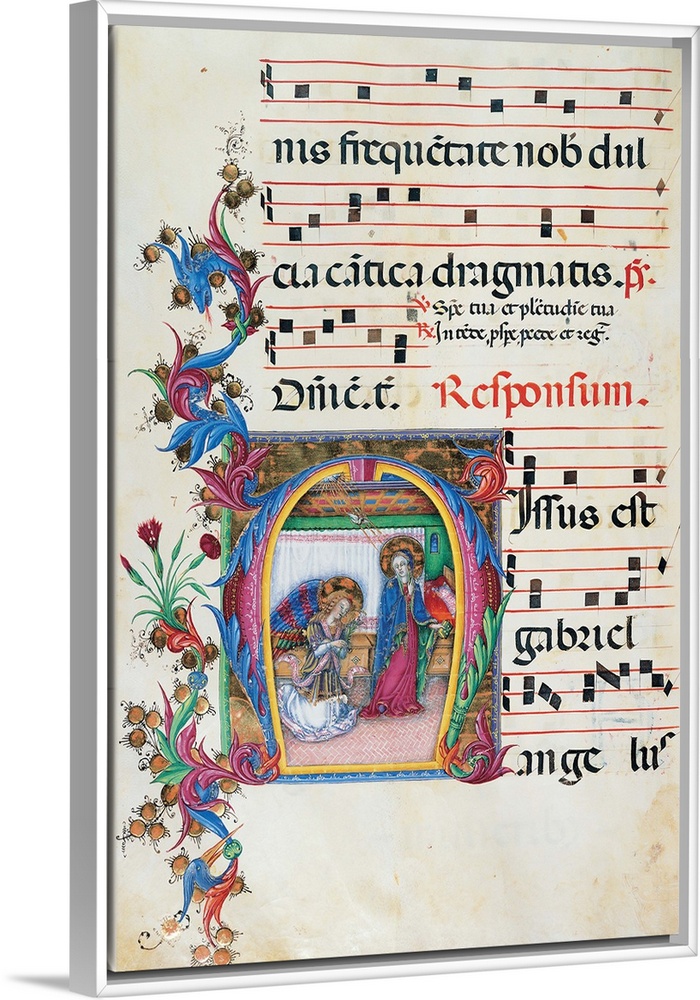 nis frequẽtare nob̃ dul
cia cãtica dragmatis. p̃s.
℣ Spẽ tua et pl̃etudie tua
℟ Intẽde, pspe, pcede et reg̃.
Dñiẽ. t̃. Responsum.
Issus est
gabriel
ange lus